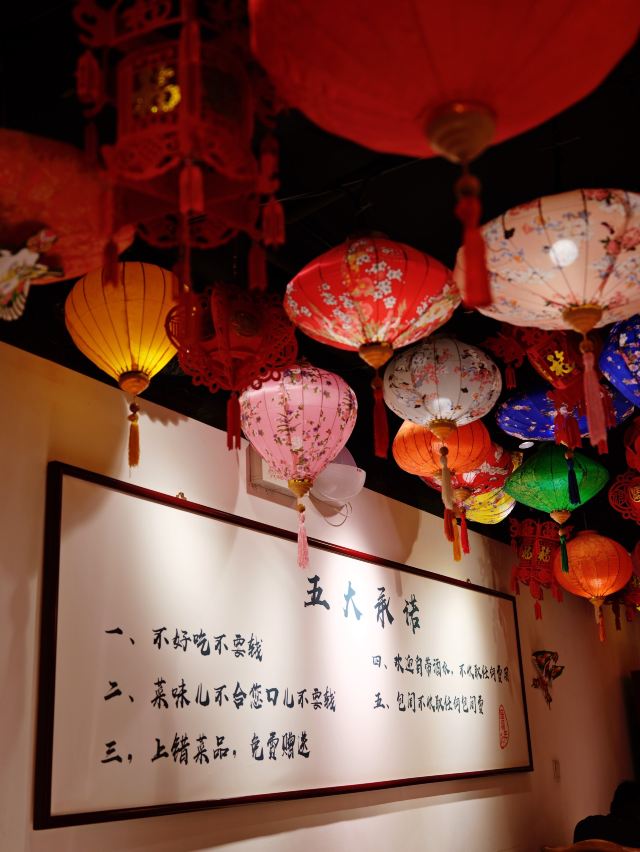 五大承诺
一、不好吃不要钱
二、菜味儿不合您口儿不要钱
三，上错菜品，免费赠送
四、欢迎自带酒水，不收取任何费用
五、包间不收取任何包间费
福
福
福